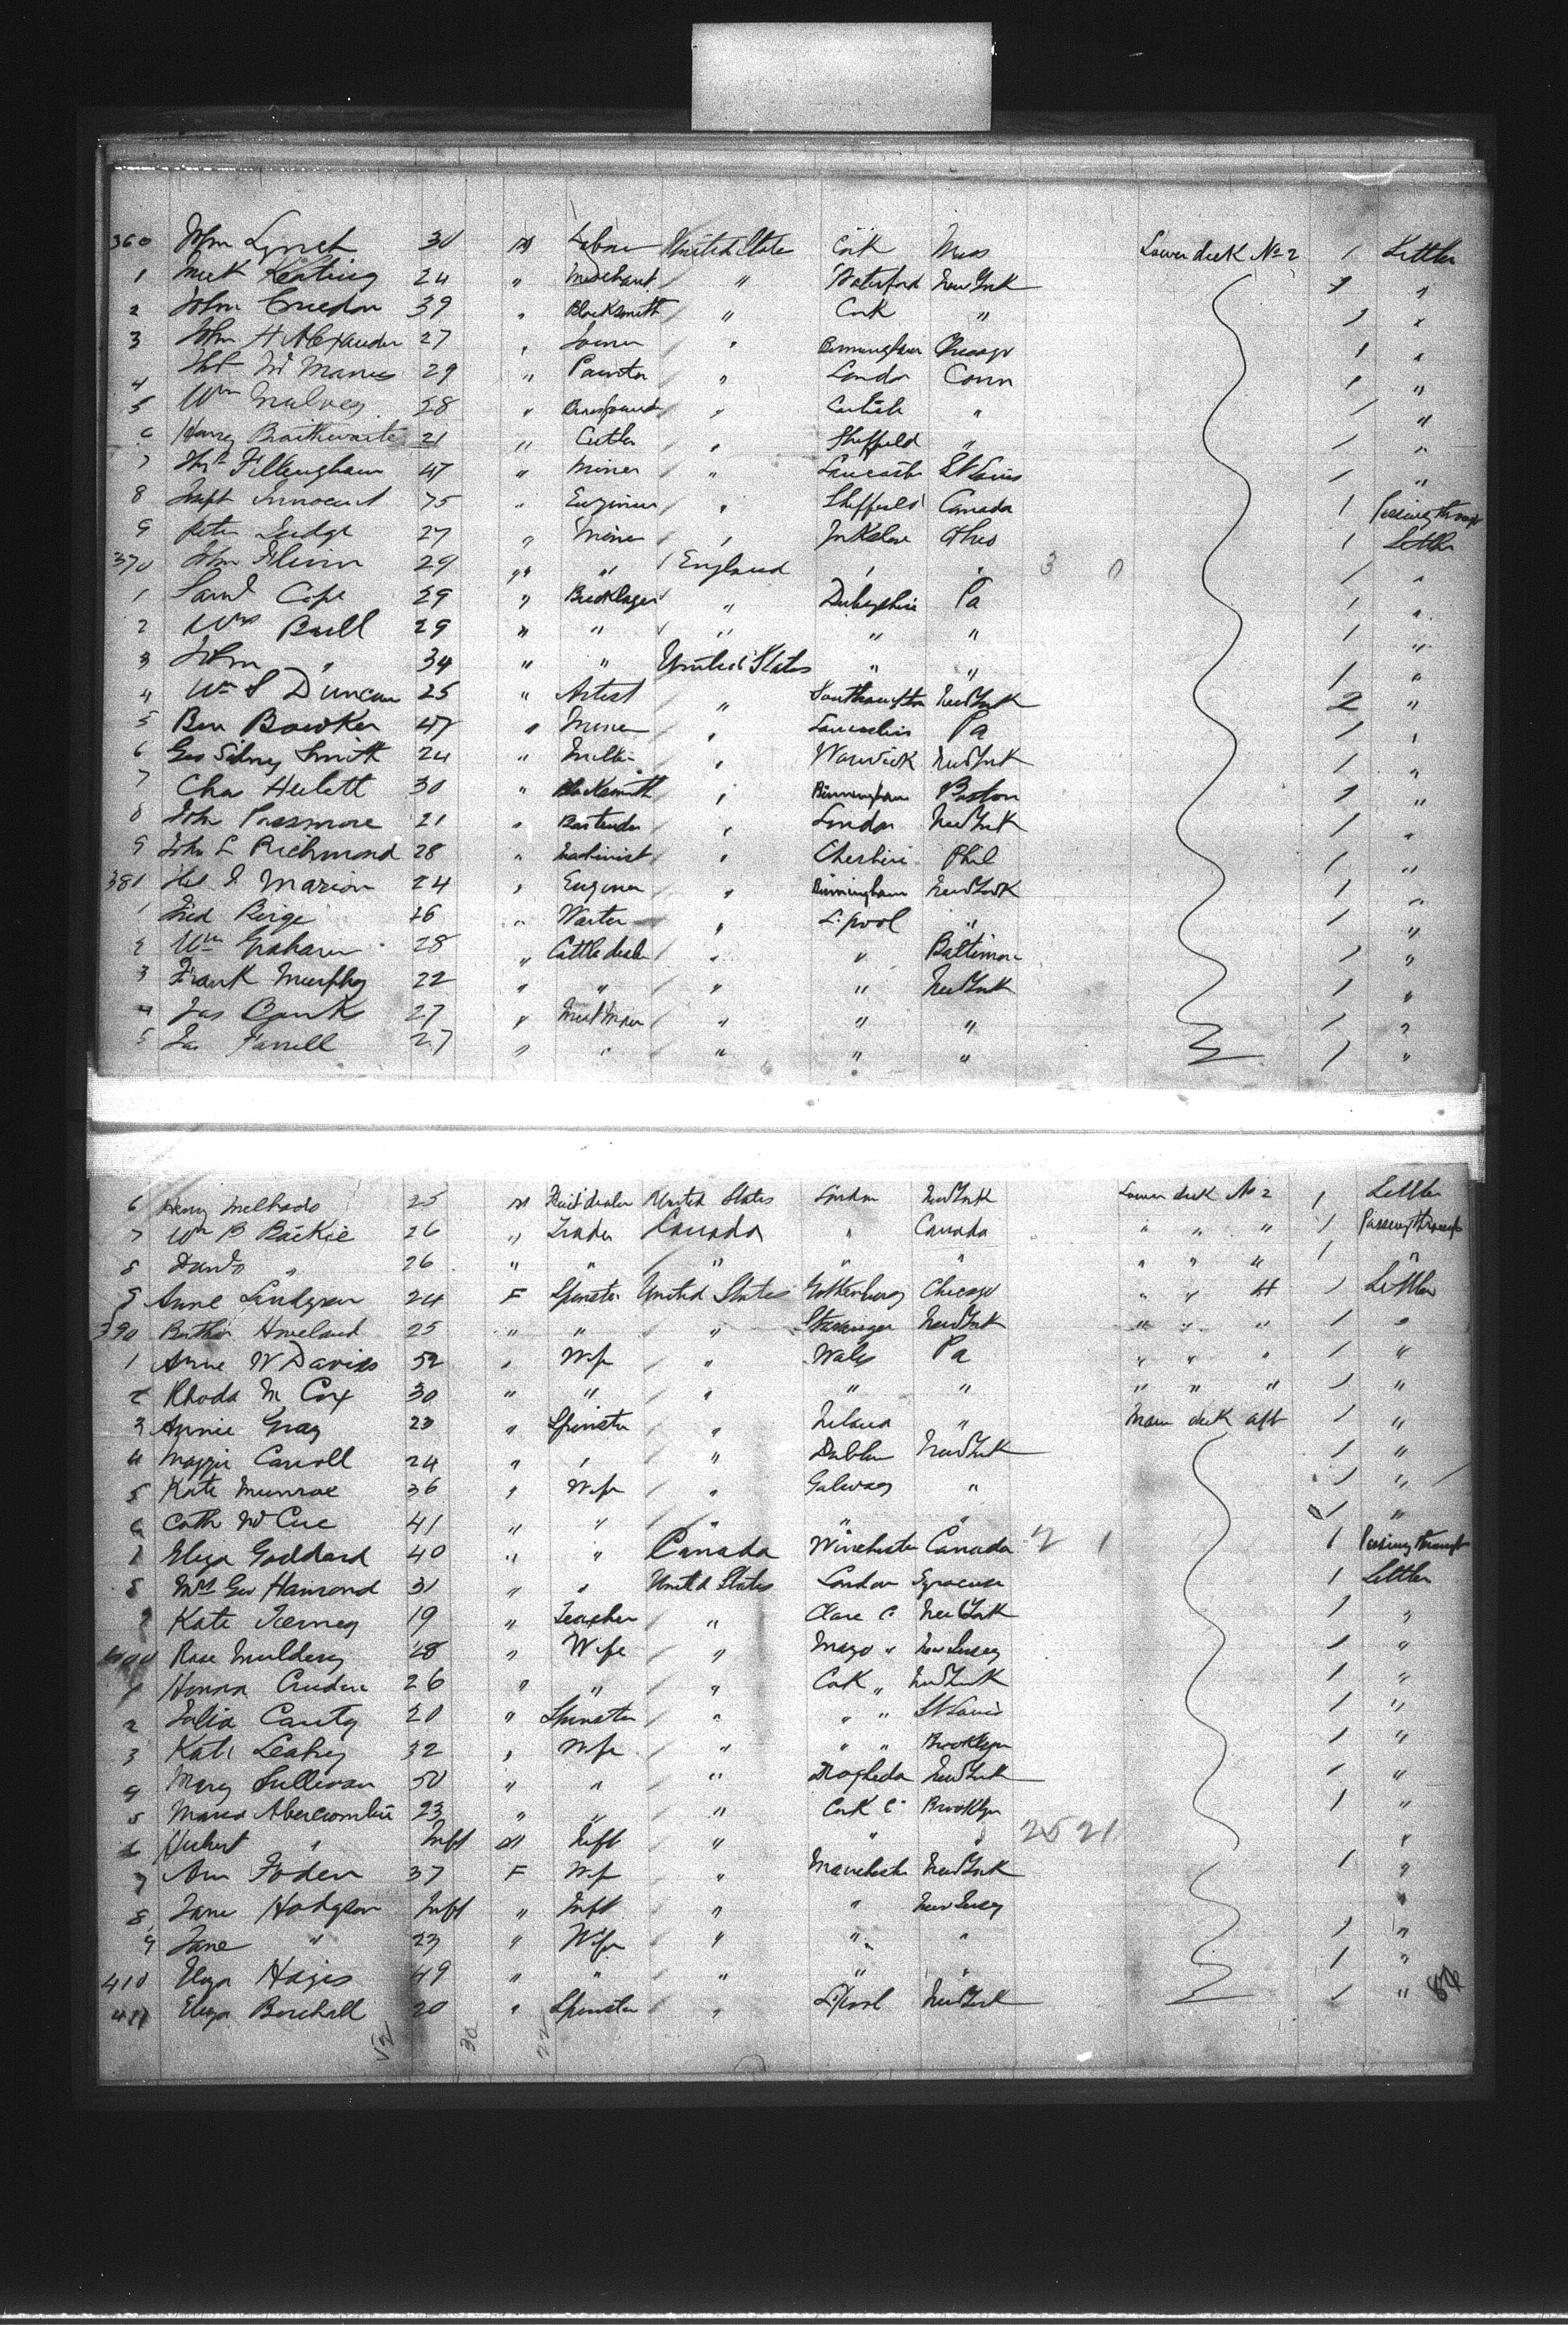 360 John Lynch 30 M Labor United States Cork Mass Lower deck No 2 1 Settler
1 Keating 24 " Merchant " Waterford New York 1 "
2 John Creedon 39 " Blacksmith " Cork " 1 "
3 John H Alexander 27 " " Birmingham Chicago 1 "
4 Mc Manus 29 " Painter " London Conn 1 "
5 Wm Mulvey 28 " " Carlisle " 1 "
6 Henry Braithwaite 21 " Cutler " Sheffield " 1 "
7 Fillingham 47 " Miner " Lancaster St Louis 1 "
8 Innocent 75 " Engineer " Sheffield Canada 1 Passing through
9 Peter Judge 27 " Miner " Yorkshire Ohio 1 Settler
370 John 29 " " England " " 3 0 1 "
1 Saml Cope 29 " Bricklayer " Derbyshire Pa 1 "
2 Wm Bull 29 " " " " " 1 "
3 John " 34 " " United States " " 1 "
4 Wm S Duncan 25 " Artist " Southampton New York 2 "
5 Ben Bowker 47 " Miner " Lancashire Pa 1 "
6 Geo Sidney Smith 24 " " Warwick New York 1 "
7 Chas Hulett 30 " Blacksmith " Birmingham Boston 1 "
8 John Passmore 21 " Bartender " London New York 1 "
9 John L Richmond 28 " Machinist " Cheshire Phil 1 "
381 Marion 24 " Engineer " Birmingham New York 1 "
1 Fred Birge 26 " Waiter " L.pool " 1 "
2 Wm Graham 28 " Cattle dealer " " Baltimore 1 "
3 Frank Murphy 22 " " " " New York 1 "
4 Jas Banks 27 " " " " 1 "
5 Jas Farrell 27 " " " " " 1 "
6 Henry Melhado 25 M Fruit dealer United States London New York Lower deck No 2 1 Settler
7 Wm B Baikie 26 " Trader Canada " Canada " " " 1 Passing through
8 David " 26 " " " " " " " " 1 "
9 Anne Lindgren 24 F Spinster United States Gothenburg Chicago " " 4 1 Settler
390 Hoveland 25 " " " Stavanger New York " " " 1 "
1 Anne W Davies 52 " Wife " Wales Pa " " " 1 "
2 Rhoda M Cox 30 " " " " " " " " 1 "
3 Annie Gray 23 " Spinster " Ireland " Main deck aft 1 "
4 Maggie Carroll 24 " " " Dublin New York 1 "
5 Kate Munroe 36 " Wife " Galway " 1 "
6 Cath McCue 41 " " " " " 1 "
7 Eliza Goddard 40 " " Canada Winchester Canada 2 1 1 Passing through
8 Mrs Geo Hamond 31 " " United States London Syracuse 1 Settler
9 Kate Tierney 19 " Teacher " Clare C. New York 1 "
400 Rose Mulderry 28 " Wife " Mayo " New Jersey 1 "
1 Honora Creedon 26 " " " Cork " New York 1 "
2 Julia Canty 20 " Spinster " " " St Louis 1 "
3 Kate Leahy 32 " Wife " " " Brooklyn 1 "
4 Mary Sullivan 50 " " " Drogheda New York 1 "
5 Maria Abercrombie 23 " " " Cork C. Brooklyn 1 "
6 Hubert " Inft M Inft " " " 25 21 "
7 Ann Foden 37 F Wife " Manchester New York 1 "
8 Jane Hodgson Inft " Inft " " New Jersey "
9 Jane " 23 " Wife " " " 1 "
410 Eliza Hayes 49 " " " " " 1 "
411 Eliza Birchall 20 " Spinster " L.pool New York 1 "
52 30 22